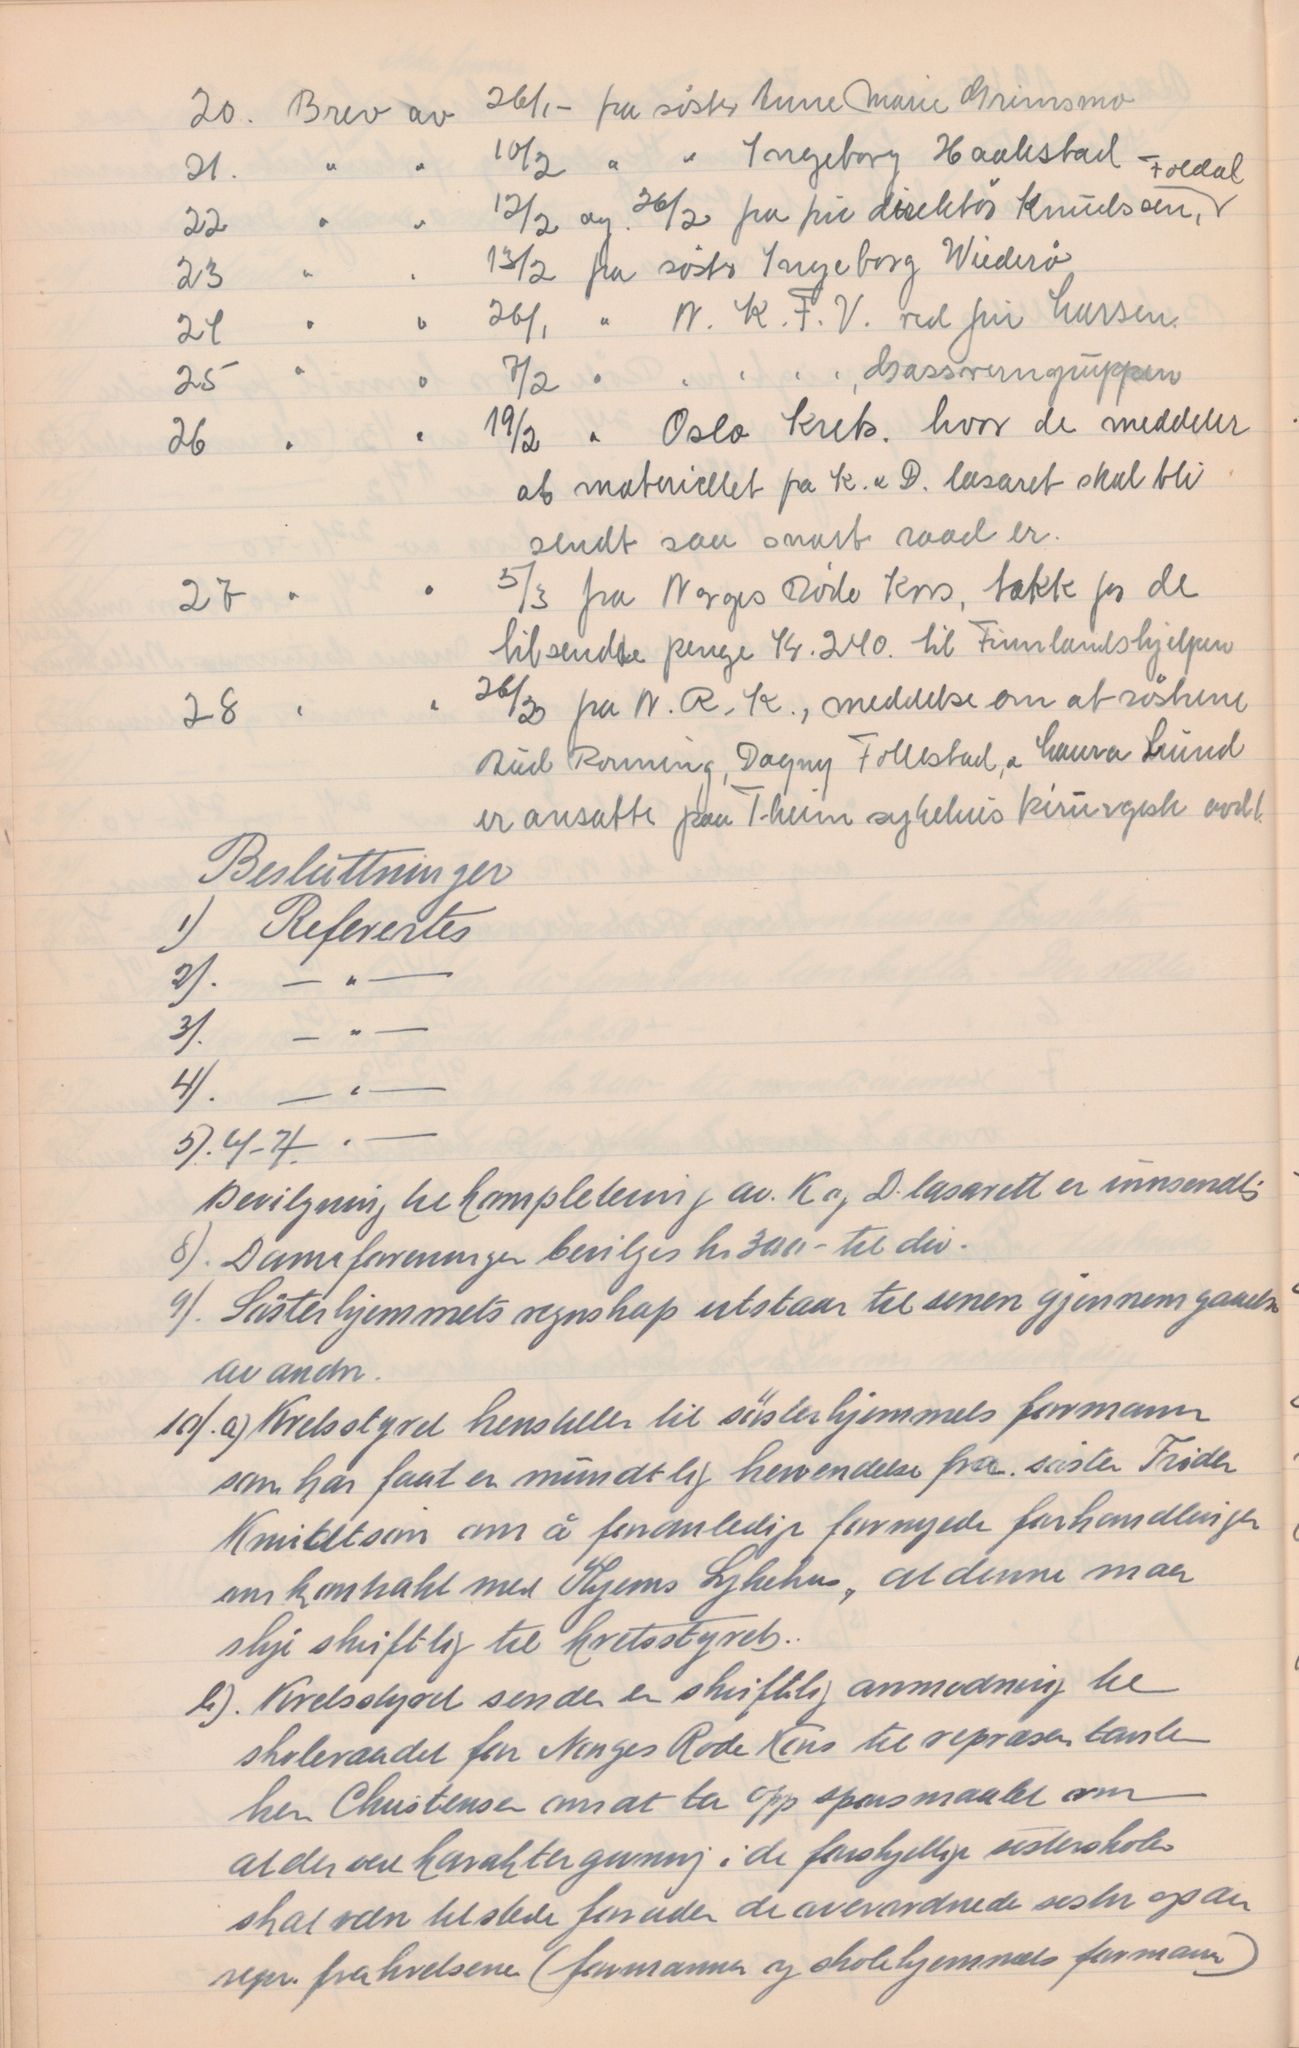 20. Brev av 26/1 – fra søster Anne Marie Grimsmo
21. " " 10/2 " " Ingeborg Haakestad
22 " " 12/2 og. 26/2 fra frü direktør Knudssen, Foldal
23 " " 13/2 fra søster Ingeborg Widerø
24 " " 26/1 " N. K. F. V. ved frü Larsen.
25 " " 7/2 " " " " ", Gassverngruppen
26 " " 19/2 " Oslo Krets. hvor de meddeler
at materiellet fra K. & D. lasaret skal bli
sendt saa snart raad er.
27 " " 5/3 fra Norges Røde Kors, takk for de
tilsendte penge Kr. 240. til Finnlandshjelpen
28 " " 26/2 fra N. R. K., meddelse om at søstrene
Rønning, Dagny Follestad, & Laura Lünd
er ansatte paa T.heim sykehüs kirürgisk avdl.
Beslüttninger
1) Refereertes
2). — " —
3). — " —
4). — " —
5). 4-7. " —
Bevilgning til komplettering av. K og D. lasarett er innsendt.
8). Dameforeninger bevilges kr 300 – til div.
9). Søsterhjemmets regnskap utstaar til senere gjennemgaaelse
av andre.
10). a) Kretsstyret henstiller til søsterhjemmets formann
som har faat en mündtlig henvendelse fra. søster
Knüdtson om å foranledige fornyede forhandlinger
om kontrakt med Hjems Sykehus, at denne maa
skje skriftlig til kretsstyret.
b). Kretsstyret sender en skriftlig anmodning til
skoleraadet for Norges Røde Kors til representante
herr Christensen om at ta opp spørsmaalet om
at der ved karaktergivning i de forskjellige søsterskoler
skal være tilstede foruden de overordnede søster ogsaa
repr. fra kretsene (formannen og skolehjemmets formann)